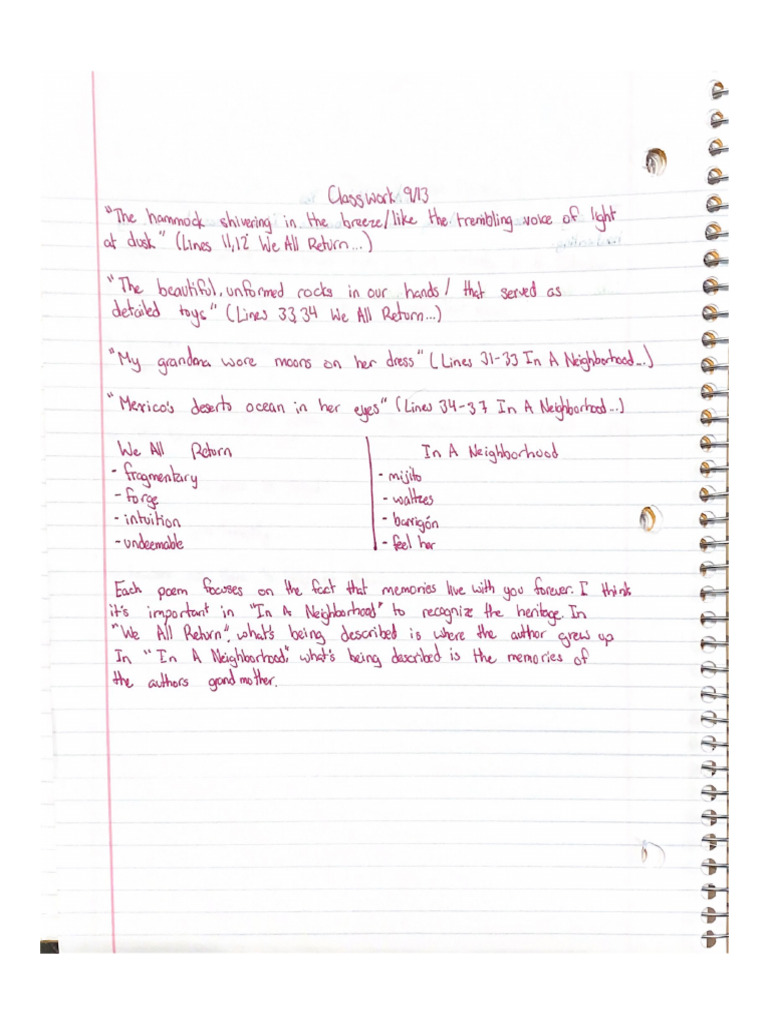 Classwork 9/13
"The hammock shivering in the breeze/like the trembling voice of light
at dusk" (Lines 11,12 We All Return...)
"The beautiful, unformed rocks in our hands/ that served as
detailed toys" (Lines 33,34 We All Return...)
"My grandma wore moons on her dress" (Lines 31-33 In A Neighborhood...)
"Mexico's deserts ocean in her eyes" (Lines 34-37 In A Neighborhood...)
We All Return
In A Neighborhood
- fragmentary
- mijito
- forge
- waltzes
- intuition
- barrigón
- undeemable
- feel her
Each poem focuses on the fact that memories live with you forever. I think
it's important in "In A Neighborhood" to recognize the heritage. In
"We All Return", what's being described is where the author grew up
In "In A Neighborhood," what's being described is the memories of
the authors grandmother.